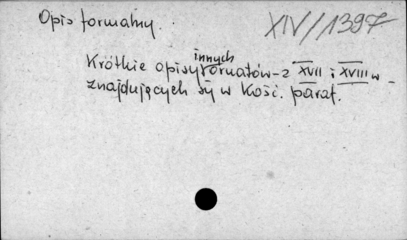 Opis formalny.
XIV/1397
innych
Krótkie opisy ornatów z XVII i XVIII w
znajdujących się w Kość. paraf.